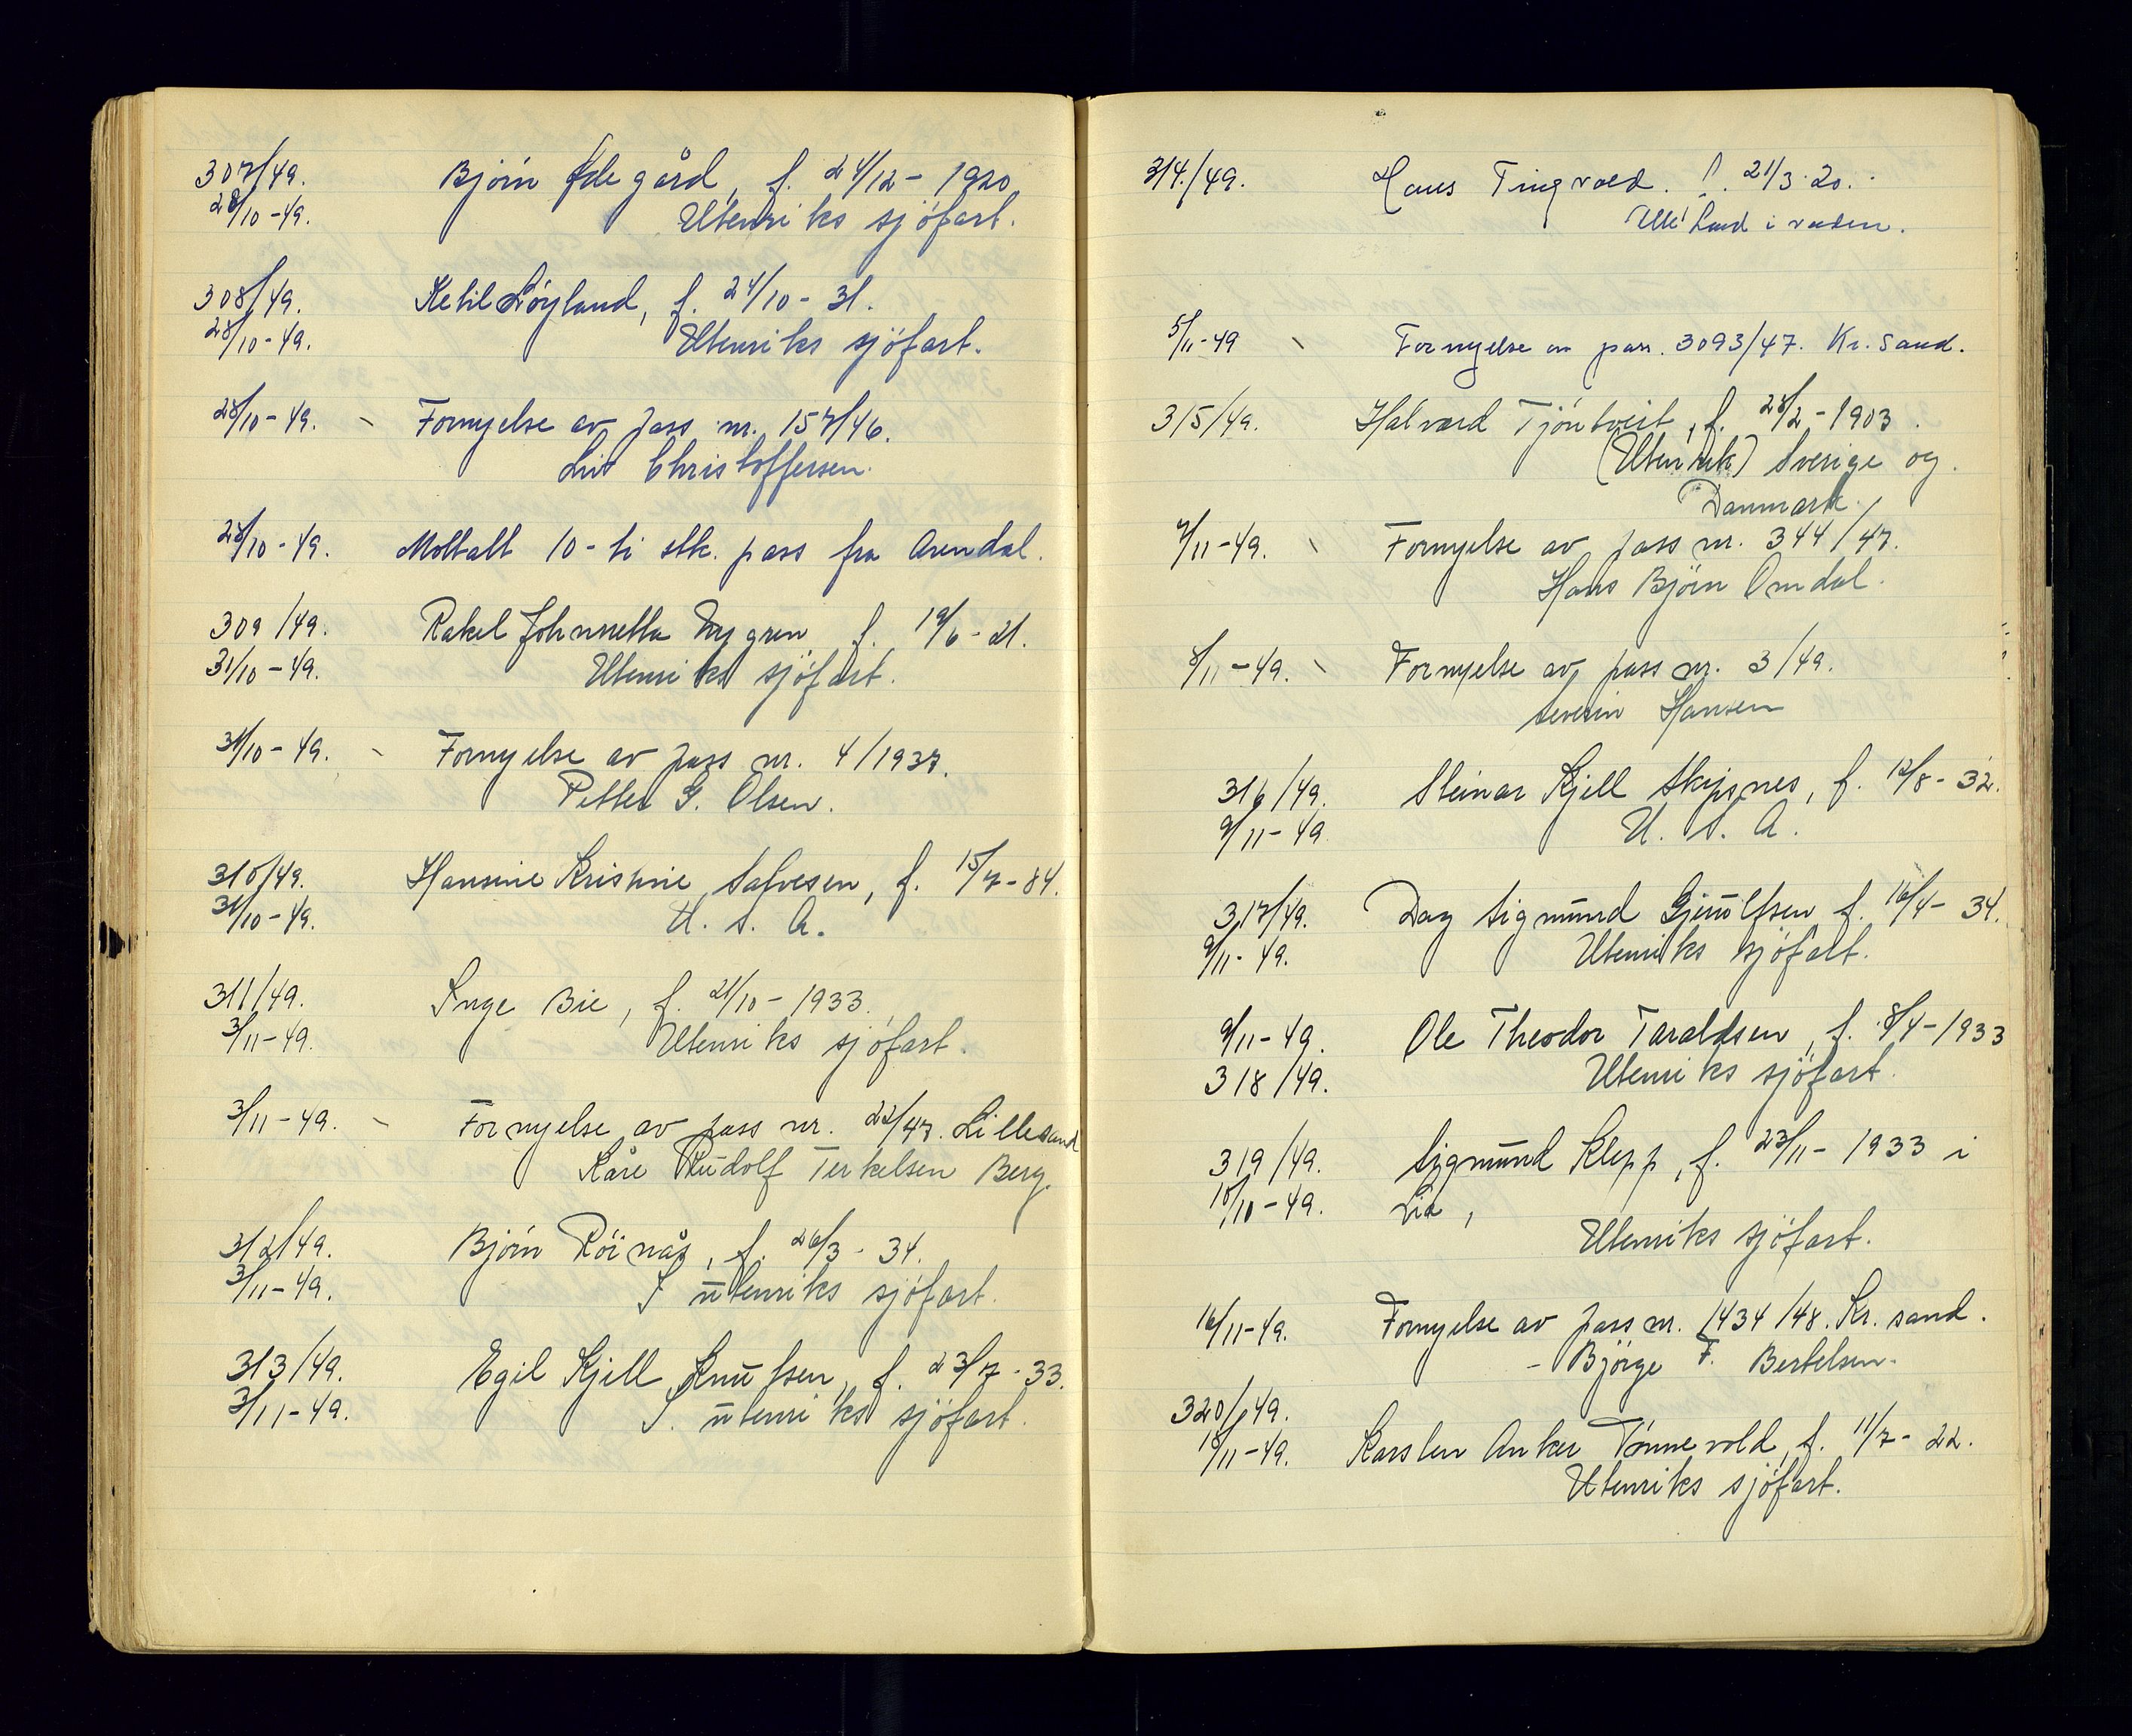 307/49. Bjørn Ødegård, f. 24/12 - 1920
28/10 - 49. Utenriks sjøfart.
308/49. Ketil Løyland, f. 24/10 - 31.
28/10 - 49. Utenriks sjøfart.
28/10 - 49. - Fornyelse av pass nr. 157/46.
Liv Christoffersen.
28/10 - 49. Mottatt 10 - ti stk. pass fra Arendal.
309/49. Rakel Johnnetta Nygren f. 19/6 - 21.
31/10 - 49. Utenriks sjøfart.
31/10 - 49. - Fornyelse av pass nr. 4/1937.
Petter G. Olsen.
310/49. Hansine Kristine Salvesen, f. 15/7 - 84.
31/10 - 49. U. S. A.
311/49. Inge Bie, f. 21/10 - 1933.
3/11 - 49. Utenriks sjøfart.
3/11 - 49. - Fornyelse av pass nr. 22/47. Lillesand
Kåre Rudolf Terkelsen Berg.
312/49. Bjørn Röinås, f. 26/3 - 34.
3/11 - 49. I utenriks sjøfart.
313/49. Egil Kjell Knutsen, f. 23/7 - 33.
3/11 - 49. I. utenriks sjøfart.
314./49. Hans Tingvold. f. 21/3 20.
land i verden.
5/11 - 49 Fornyelse av pass. 3093/47. Kr. Sand.
315/49. Halvard Tjøntveit, f. 28/2 - 1903.
(Utenrik) Sverige og
Danmark.
7/11 - 49. Fornyelse av pass nr. 344/47.
Hans Bjørn Omdal.
8/11 - 49. Fornyelse av pass nr. 3/49.
Severin Hansen
316/49. Steinar Kjell Skipsnes, f. 12/8 - 32.
9/11 - 49. U. S. A.
317/49. Dag Sigmund Gjeruldsen f. 16/4 - 34.
9/11 - 49. Utenriks sjøfart.
9/11 - 49. Ole Theodor Taraldsen, f. 8/4 - 1933
318/49. Utenriks sjøfart.
319/49. Sigmund Klepp, f. 23/11 - 1933 i
10/10 - 49. Lia,
Utenriks sjøfart.
16/11 - 49. Fornyelse av pass nr. 1434/48. Kr. sand.
- Bjørge F. Bertelsen.
320/49.
18/11 - 49. Karsten Anker Tønnevold, f. 11/7 - 22.
Utenriks sjøfart.